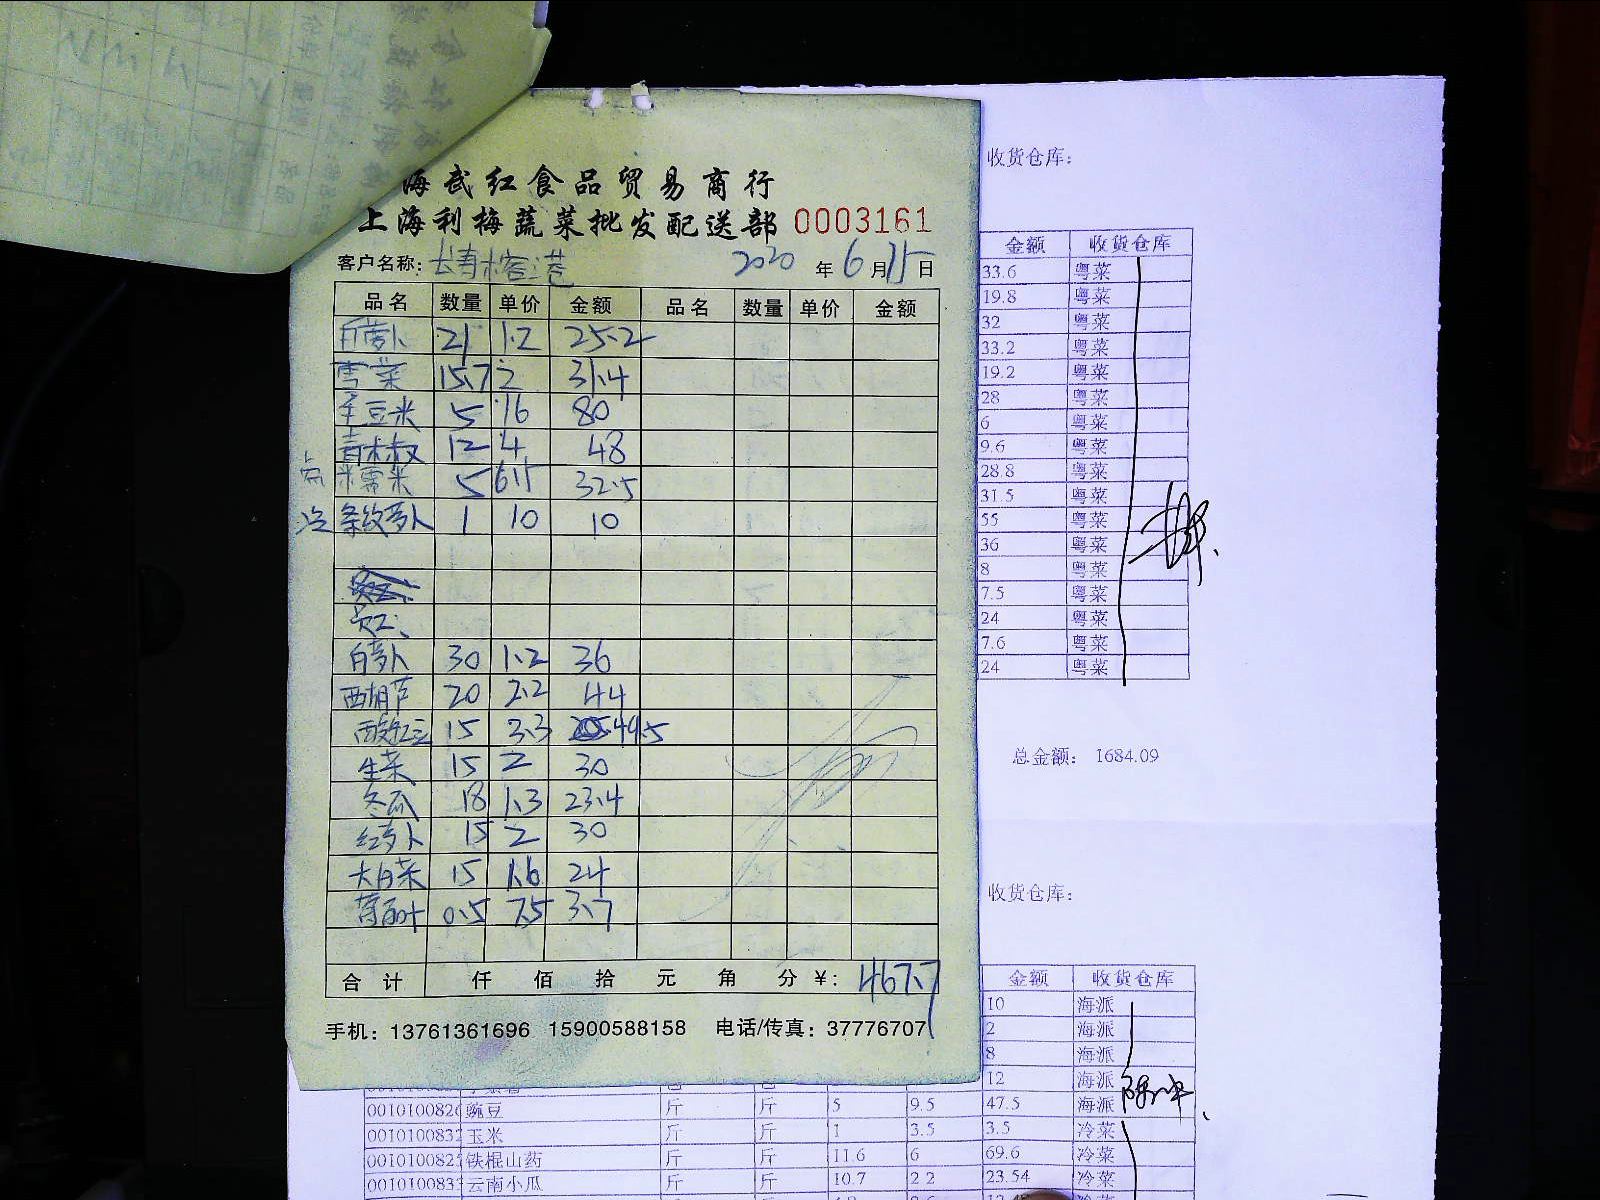 海武红食品贸易商行
上海利梅蔬菜批发配送部 0003161
客户名称: 2020 年 6 月 15 日
品名 数量 单价 金额 品名 数量 单价 金额
白萝卜 21 1.2 25.2
雪菜 15.7 2 31.4
毛豆米 5 16 80
青木椒 12 4 48
5 6.5 32.5
冷 条纹萝卜 1 10 10
员工:
白萝卜 30 1.2 36
西葫芦 20 2.2 44
酸豇豆 15 3.3 49.5
生菜 15 2 30
冬瓜 18 1.3 23.4
红萝卜 15 2 30
大白菜 15 1.6 24
0.5 7.5 3.7
合计 仟 佰 拾 元 角 分 ¥: 467.7
手机: 13761361696 15900588158 电话/传真: 37776707
收货仓库:
金额 收货仓库
33.6 粤菜
19.8 粤菜
32 粤菜
33.2 粤菜
19.2 粤菜
28 粤菜
6 粤菜
9.6 粤菜
28.8 粤菜
31.5 粤菜
55 粤菜
36 粤菜
8 粤菜
7.5 粤菜
24 粤菜
7.6 粤菜
24 粤菜
总金额: 1684.09
收货仓库:
金额 收货仓库
10 海派
2 海派
8 海派
12 海派
001010082 豌豆 斤 斤 5 9.5 47.5 海派
001010083 玉米 斤 斤 1 3.5 3.5 冷菜
001010082 铁棍山药 斤 斤 11.6 6 69.6 冷菜
001010083 云南小瓜 斤 斤 10.7 2.2 23.54 冷菜